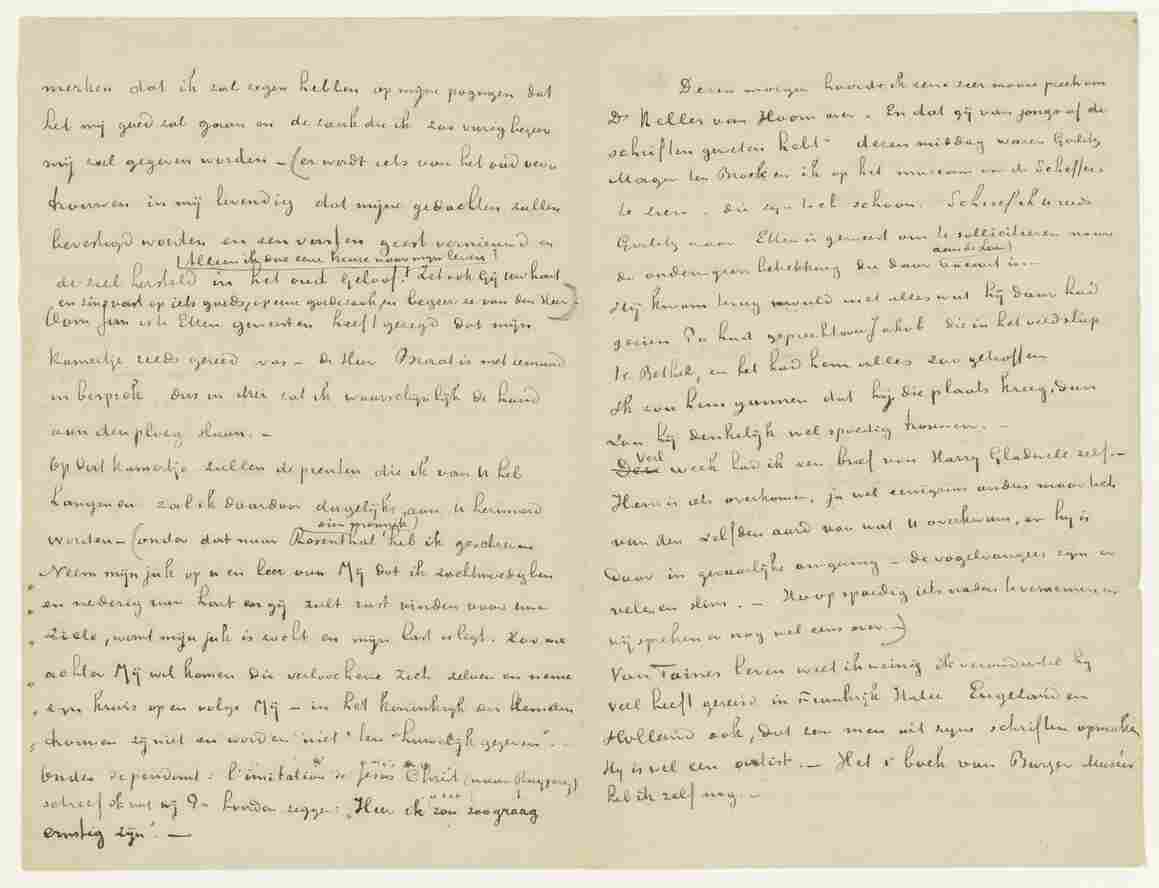 merken dat ik zal zegen hebben op mijne pogingen dat
het mij goed zal gaan en de zaak die ik zoo vurig begeer
mij zal gegeven worden – (er wordt iets van het oud ver-
trouwen in mij levendig dat mijne gedachten zullen
bevestigd worden en een vasten geest vernieuwd en
de ziel hersteld in het oud Geloof!
(Alleen ik doe eene keuze voor mijn leven!
Zet ook Gij uw hart
en zin vast op iets goeds, op eene goede zaak en begeer ze van den Heer)
Oom Jan is te Etten geweest en heeft gezegd dat mijn
kamertje reeds gereed was – de Heer Braat is met iemand
in besprek dus in Mei zal ik waarschijnlijk de hand
aan den ploeg slaan. –
Op dat kamertje zullen de prenten die ik van U heb
hangen en zal ik daardoor dagelijks aan U herinnerd
worden – (onder dat naar Rosenthal heb ik geschreven
Neem mijn juk op u en leer van Mij dat ik zachtmoedig ben
en nederig van hart en gij zult rust vinden voor uwe
Ziele, want mijn juk is zacht en mijn last is ligt. Zoo wie
achter Mij wil komen die verloochene zich zelven en neme
zijn kruis op en volge Mij – in het koninkrijk der Hemelen
nemen zij niet en worden niet ten huwelijk gegeven". –
Onder de pendant: l'imitation de Jésus Christ (naar Ruyperez)
schreef ik wat wij Pa hoorden zeggen: „Heer ik zou zoo graag
ernstig zijn". –
Dezen morgen hoorde ik eene zeer mooie preek van
Ds Keller van Hoorn over. En dat gij van jongs af de
schriften geweten hebt – dezen middag waren Gorlitz
Mager ten Broek en ik op het museum om de Scheffers
te zien – die zijn toch schoon. Schreef ik U reeds
Gorlitz naar Etten is geweest om te solliciteeren naar
de onderwijzers betrekking die daar vacant is. –
(aan de Leur)
Hij kwam terug vervuld met alles wat hij daar had
gezien Pa had gepreekt over Jakob die in het veld sliep
te Bethel, en het had hem alles zoo getroffen
Ik zou hem gunnen dat hij die plaats kreeg, dan
zou hij denkelijk wel spoedig trouwen. –
Verl week had ik een brief van Harry Gladwell zelf –
Hem is iets overkomen, ja wel eenigzins anders maar toch
van den zelfden aard van wat U overkwam, en hij is
daar in gevaarlijke omgeving – de vogelvangers zijn er
velen en slim. – Hoop spoedig iets nader te vernemen en
wij spreken er nog wel eens over. –)
Van Taines leven weet ik weinig ik veronderstel hij
veel heeft gereisd in Frankrijk Italie Engeland en
Holland ook, dat zou men uit zijne schriften opmaken
Hij is wel een artist. – Het boek van Burger Musées
heb ik zelf nog. –